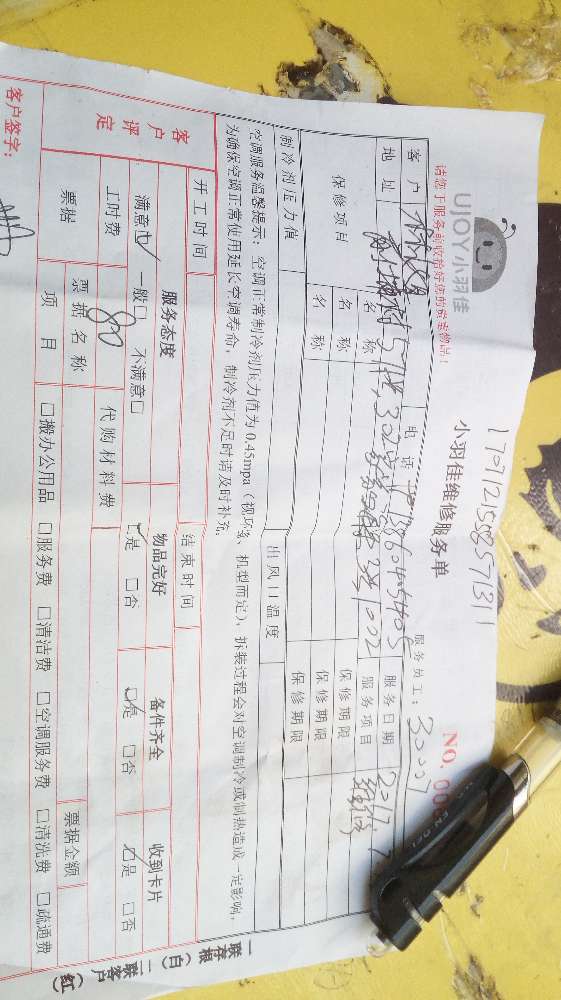 1701121588571311
UJOY小羽佳
小羽佳维修服务单
NO. 00
请您于服务前收拾好您的贵重物品！
服务员工：30007
客户 电话 服务日期 2017
地址 服务项目 维修
保修项目 名称 保修期限
名称 保修期限
名称 保修期限
制冷剂压力值 出风口温度
空调服务温馨提示：空调正常制冷剂压力值为0.45mpa（视环境、机型而定），拆装过程会对空调制冷或制热造成一定影响，
为确保空调正常使用延长空调寿命，制冷剂不足时请及时补充。
开工时间 结束时间
客户评定 服务态度 物品完好 备件齐全 收到卡片
满意☑ 一般□ 不满意□ ☑是 □否 ☑是 □否 ☑是 □否
工时费 80 代购材料费
票据 票据名称 票据金额
项目 □搬办公用品 □服务费 □清洁费 □空调服务费 □清洗费 □疏通费
客户签字：
一联存根（白）二联客户（红）